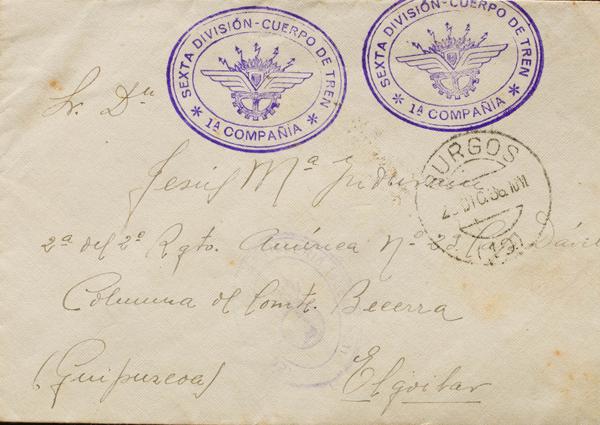 SEXTA DIVISIÓN-CUERPO DE TREN
* 1ª COMPAÑIA *
SEXTA DIVISIÓN-CUERPO DE TREN
* 1ª COMPAÑIA *
Sr. Dn
BURGOS
DIC.36.10M
(19)
Jesús Mª
2ª del 2º Rgto. América Nº 23
Columna del Comte. Becerra
(Guipuzcoa) Elgoibar